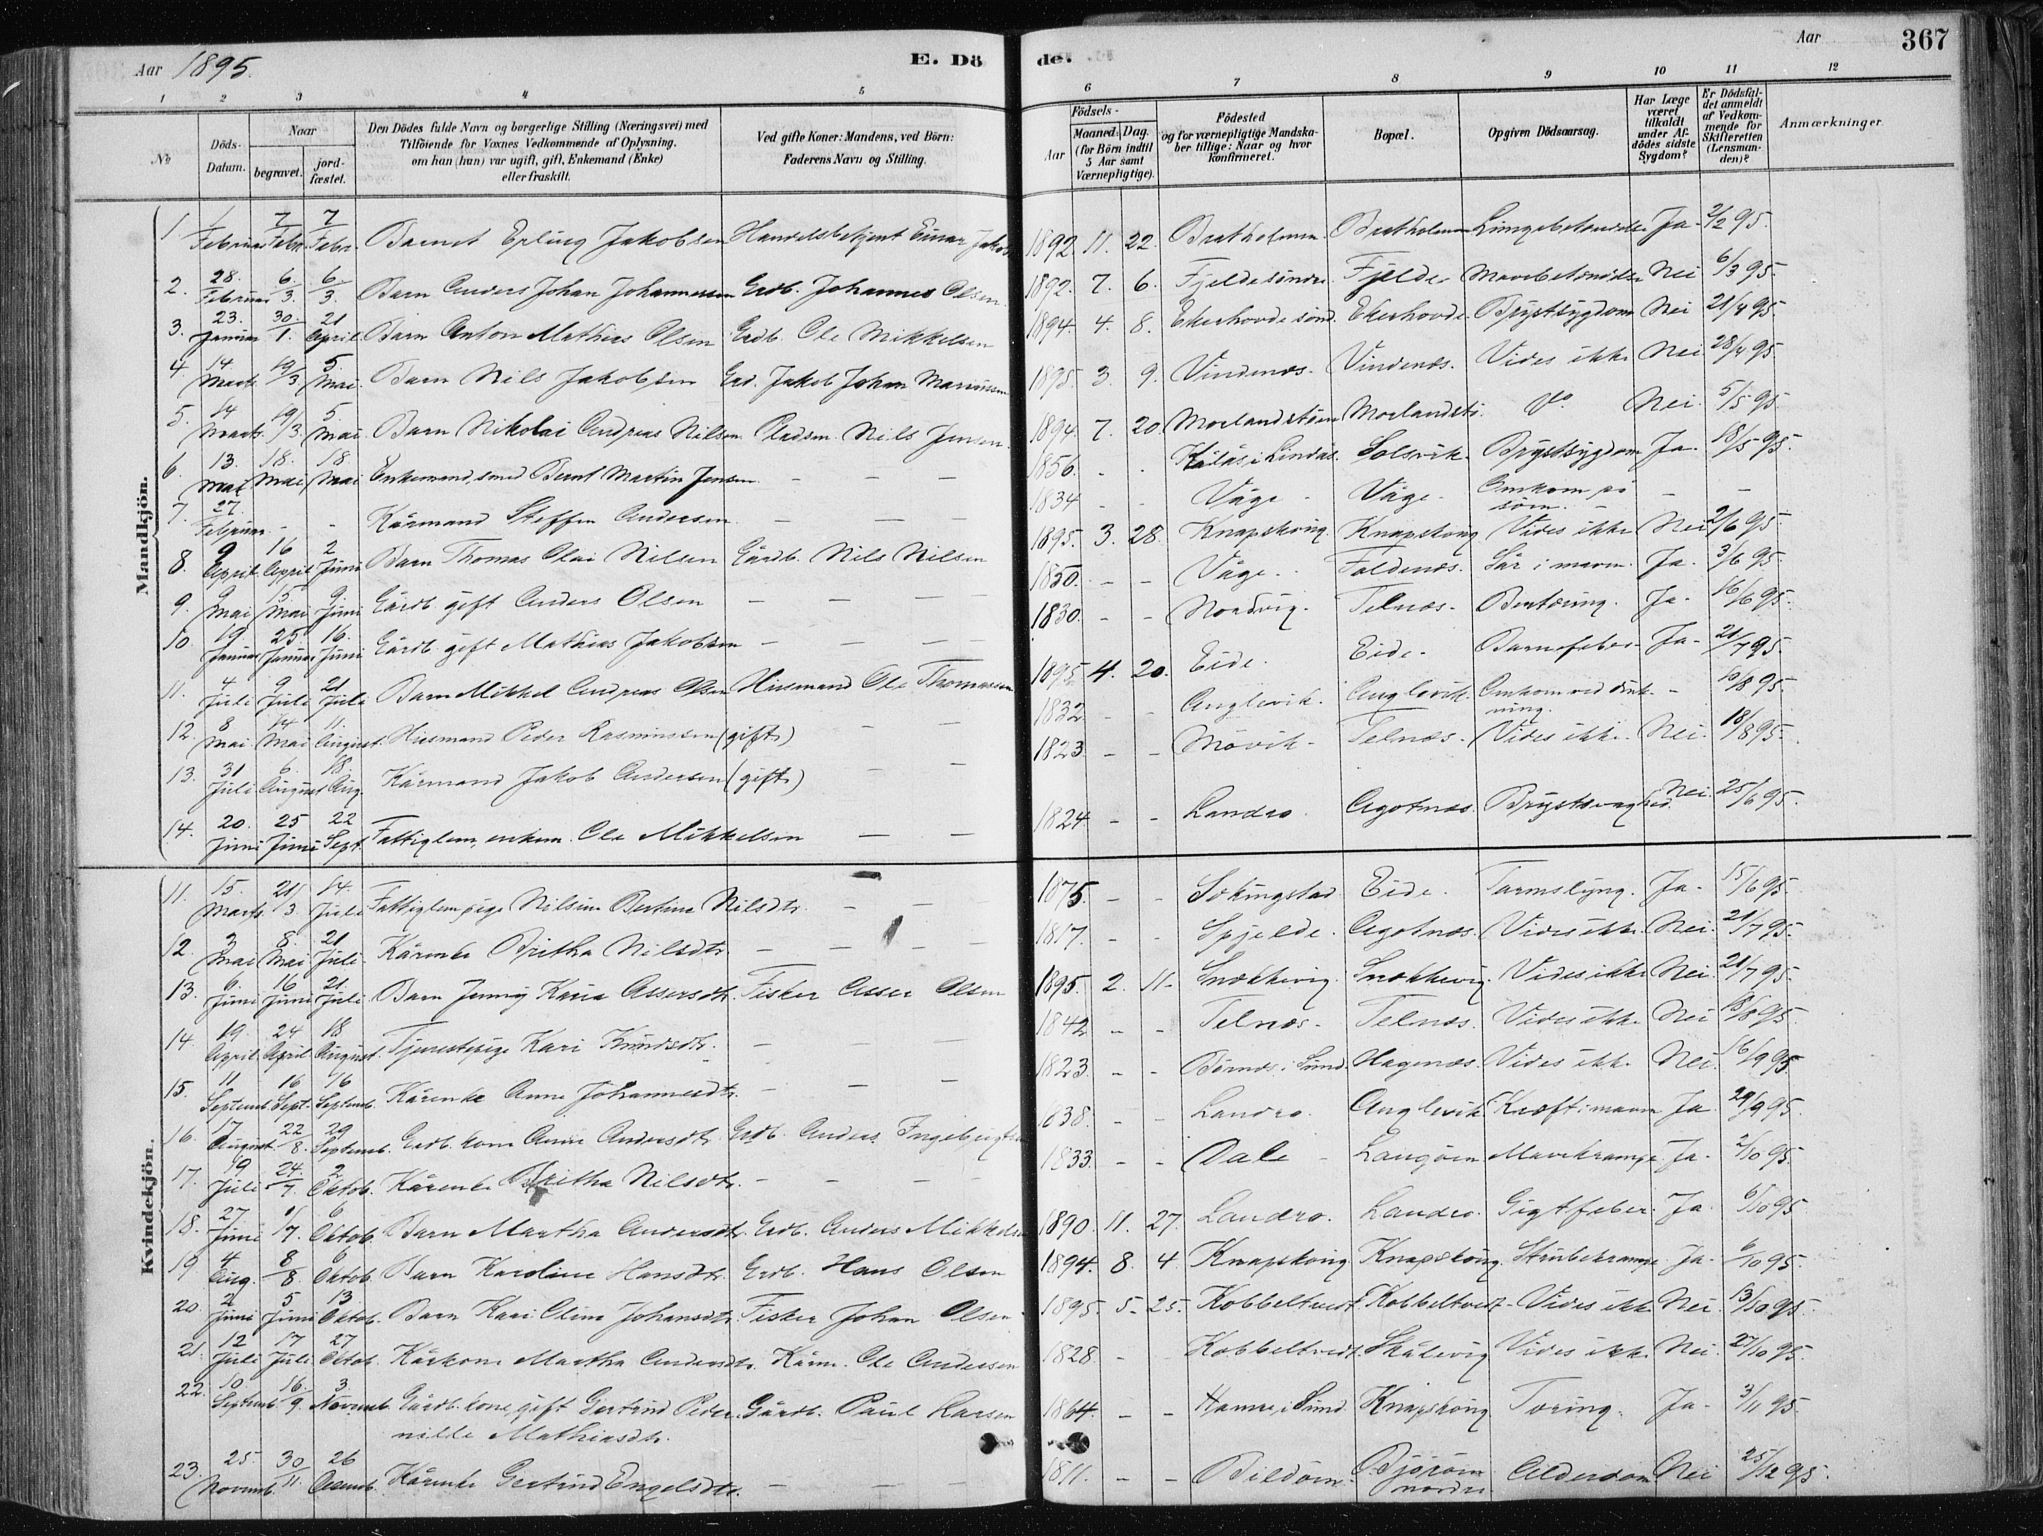 Aar 1895.
E. Dö
de.
Aar
367
1 2 3 4 5
6 7 8 9 10 11 12
No
Döds-Datum.
Naar
begravet.
jord-fæstet.
Den Dödes fulde Navn og borgerlige Stilling (Næringsvei) med
Tilföiende for Voxnes Vedkommende af Oplysning,
om han (hun) var ugift, gift, Enkemand (Enke)
eller fraskilt.
Ved gifte Koner: Mandens, ved Börn:
Faderens Navn og Stilling.
Födsels-
Aar
Maaned. Dag.
(for Börn indtil
5 Aar samt
Værnepligtige).
Födested
og for værnepligtige Mandska-
ber tillige: Naar og hvor
konfirmeret.
Bopæl.
Opgiven Dödsaarsag.
Har Læge
været
tilkaldt
under Af-
dödes sidste
Sygdom?
Er Dödsfal-
det anmeldt
af Vedkom-
mende for
Skifteretten
(Lensman-
den)?
Anmærkninger.
Mandkjön.
1. 1/Februar 7/Febr. 7/Febr. Barnet Erling Jakobsen Handelsbetjent Einar Jakob 1892. 11. 22. Bratholmen Bratholmen Lungebetændelse Ja 2/2 95.
2. 28./Februar 6/3. 6/3. Barn Anders Johan Johannessen Grdb. Johannes Olsen. 1892. 7. 6. Fjelde söndre Fjelde Mavebetændelse Nei 6/3 95.
3. 23./Januar 30./1. 21/April Barn Anton Mathias Olsen Grdb. Ole Mikkelsen 1894. 4. 8. Ekerhovde sönd. Ekerhovde. Brystsygdom Nei 21/4 95.
4. 14/Marts 19/3. 5./Mai. Barn Nils Jakobsen Grd. Jakob Johan Mariussen 1895. 3. 9. Vindenæs. Vindenæs. Vides ikke Nei 28/4 95
5. 14/Marts. 19/3. 5./Mai. Barn Nikolai Andreas Nilsen Pladsm. Nils Jensen. 1894 7. 20. Morlandstöen Morlandstö. do. Nei. 5/5 95.
6. 13./Mai 18./Mai 18/Mai Enkemand, smed Bernt Martin Jensen – – – 1856. - - Kålås i Lindås. Solsvik. Brystsygdom Ja. 18/5 95.
7. 27./Februar. - - Kårmand Steffen Andersen – – – 1834 - - Våge - Våge. Omkom på söen. – –
8. 9/April 16/April 2/Juni Barn Thomas Olai Nilsen Gårdb. Nils Nilsen 1895. 3. 28. Knapskoug Knapskoug Vides ikke Nei 2/6 95.
9. 9/Mai 15./Mai 9./Juni Gårdb. gift Anders Olsen – – – 1850. - - Våge. Foldenæs. Sår i maven. Ja. 3/6 95.
10 19/Januar 25./Januar 16./Juni Gårdb. gift Mathias Jakobsen – – – 1830. - - Nordvig. Telnæs. Bentæring. Ja. 16/6 95.
11. 4/Juli 9/Juli 21/Juli Barn Mikkel Andreas Olsen Husmand Ole Thomassen 1895. 4. 20. Eide. Eide. Barnefeber Ja. 21/7 95.
12. 8/Mai 14/Mai 11./August. Husmand Peder Rasmussen (gift) – – 1832 - - Anglevik. Anglevik. Omkom ved drukning. –
13. 31/Juli 6./August 18/Aug. Kårmand Jakob Andersen (gift) – – 1823. - - Mövik. Telnæs. Vides ikke. Nei. 18/8 95.
14. 20./Juni 25/Juni 22/Sept. Fattiglem, enkem. Ole Mikkelsen – – 1824 - - Landro. Agotnæs. Brystsvaghed Nei. 25/6 95.
Kvindekjön.
11. 15./Marts. 21/3. 14./Juli Fattiglem, pige Nilsine Bertine Nilsdtr. – – 1875. - - Sekingstad Eide. Tarmslyng. Ja. 15/6 95.
12. 3/Mai 8./Mai 21./Juli. Kårenke Britha Nilsdtr. – – – 1817. - - Spjelde. Agotnæs. Vides ikke. Nei. 21/7 95.
13. 6./Juni 16/Juni 21./Juli Barn Jenny Karia Assersdtr. Fisker Asser Olsen 1895. 2. 11. Snekkevig. Snekkevig. Vides ikke Nei. 21/7 95.
14. 19./April. 24/April 18/August. Tjenestepige Kari Knudsdtr. – – – 1842 - - Telnæs. Telnæs. Vides ikke Nei 18/8 95.
15. 11/Septemb. 16/Sept. 16/Septemb. Kårenke Anne Johannesdtr. – – – 1823. - - Börnæs i Sund. Hagenæs. Vides ikke. Nei. 16/9 95
16. 17/August 22/8. 29/Septemb. Grdb. kone Anne Andersdtr. Grdb. Anders Ingebrigts 1838. - - Landro. Anglevik Kræft i maven Ja 29/9 95.
17. 19/Juli 24./7. 2/Oktob. Kårenke Britha Nilsdtr. – – – 1833. - - Dale - Langöen Mavekrampe Ja. 2/10 95.
18. 27/Juni 1/7. 6/Oktob. Barn Martha Andersdtr. Grdb. Anders Mikkelsen 1890. 11. 27. Landro. Landro. Gigtfeber. Ja. 6/10 95
19 4/Aug. 8/8. 6/Oktob. Barn Karoline Hansdtr. Grdb. Hans Olsen 1894. 8. 4. Knapskoug Knapskoug. Strubekrampe Ja. 6/10 95.
20. 2/Juni 5/Juni 13/Oktob. Barn Kari Oline Johansdtr. Fisker Johan Olsen 1895. 5. 25. Kobbeltvedt. Kobbeltvedt. Vides ikke Nei. 13/10 95.
21. 12/Juli 17/Juli. 27/Oktob. Kårkone Martha Andersdtr. Kårm. Ole Andersen 1828. - - Kobbeltvedt. Skålevig Vides ikke Nei. 27/10 95.
22. 10/Septemb 16./9. 3/Novemb. Gårdb. kone, gift Gertrud Peder- Gårdb. Paul Larsen 1864. - - Hamre i Sund. Knapskoug Tæring. Ja. 3/11 95.
nille Mathiasdtr.
23. 25./Novemb. 30/11. 26/Decemb. Kårenke Gertrud Engelsdtr. – – 1811. - - Bildöen. Björöen nordre. Alderdom Nei 25/12 95.